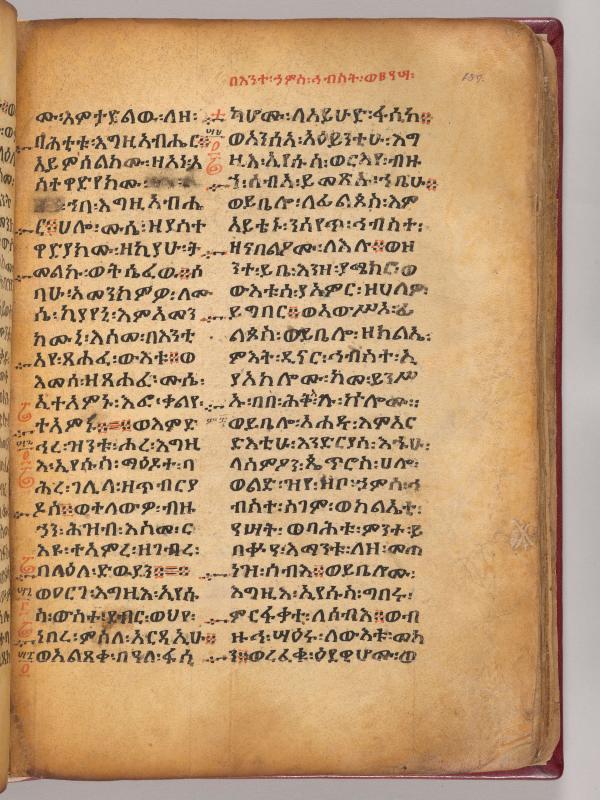 በእንተ፡ኃምስ፡ኅብስት፡ወ፪ዓሣ፡
ሙ፡እምታድልው፡ለዘ፡
ባሕቲቱ፡እግዚአብሔር፨
ኢይምሰልክሙ፡ዘአነ፡አ
ስተዋድየክሙ፡
ኀበ፡እግዚአብሔ
ር፨ሀሎ፡ሙሴ፡ዘያስተ
ዋድያክሙ፡ዘኪያሁ፡ት
መልኩ፡ወትሴፈወ፨ሶ
ባሁ፡አመንክምዎ፡ለሙ
ሴ፡ኪያየኒ፡እምአመን
ክሙኒ፡እስመ፡በእንቲ
አየ፡ጸሐፈ፡ውእቱ፨ወ
እመሰ፡ዘጸሐፈ፡ሙሴ፡
ኢተአምኑ፡እፎ፡ቃልየ፡
ተአምኑ፨=፨ወእምድ
ኅረ፡ዝንቱ፡ሐረ፡እግዚ
እ፡ኢየሱስ፡ማዕዶተ፡ባ
ሕረ፡ገሊላ፡ዘጥብርያ
ዶስ፨ወተለውዎ፡ብዙ
ኃን፡ሕዝብ፡እስመ፡ር
እዩ፡ተአምረ፡ዘገብረ፡
በላዕለ፡ድዉያን፨=፨
ወዐርገ፡እግዚእ፡ኢየሱ
ስ፡ውስተ፡ደብር፡ወህየ፡
ነበረ፡ምስለ፡አርዳኢሁ፨
ወአልጸቀ፡በዓለ፡ፋሲ
ካሆሙ፡ለአይሁድ፡ፋሲካ፨
ወአንሰአ፡አዕይንቲሁ፡እግ
ዚእ፡ኢየሱስ፡ወርእየ፡ብዙ
ኀ፡ሰብአ፡ይመጽኡ፡ኀቤሁ፨
ወይቤሎ፡ለፊልጶስ፡እም
አይቴኑ፡ንሰየጥ፡ኅብስተ፡
ዘናበልዖሙ፡ለእሉ፨ወዘ
ንተ፡ይቤ፡እንዘ፡ያሜክሮ፡ወ
ውእቱሰ፡ያአምር፡ዘሀለዎ፡
ይግበር፨ወአውሥአ፡ፊ
ልጶስ፡ወይቤሎ፡ዘክልኤ፡
ምእት፡ዲናር፡ኅብስተ፡ኢ
ያአክሎሙ፡ከመ፡ይንሥ
ኡ፡በበ፡ሕቀ፡ኵሎሙ፨
ወይቤሎ፡አሐዱ፡እምአር
ድእቲሁ፡እንድርያስ፡እኁሁ፡
ለስምዖን፡ጴጥሮስ፡ሀሎ፡
ወልድ፡ዝየ፡ዘቦ፡ኃምስ፡ኅ
ብስተ፡ስገም፡ወክልኤቲ፡
ዓሣት፡ወባሕቱ፡ምንተ፡ይ
በቍዓ፡እማንቱ፡ለዘ፡መጠ
ነዝ፡ሰብእ፨ወይቤሎሙ፡
እግዚእ፡ኢየሱስ፡ግበሩ፡
ምርፋቀተ፡ለሰብእ፨ወብ
ዙኅ፡ሣዕሩ፡ለውእቱ፡መካ
ን፨ወረፈቁ፡ዕደዊሆሙ፡ወ